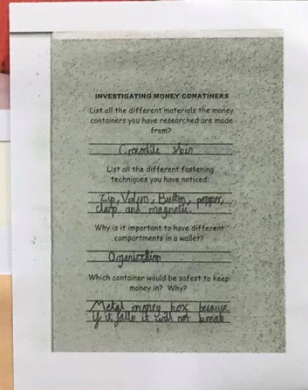 INVESTIGATING MONEY CONATINERS
List all the different materials the money
containers you have researched are made
from?
Crocodile skin
List all the different fastening
techniques you have noticed:
Zip, Velcro, Button, popper,
clasp and magnetic.
Why is it important to have different
compartments in a wallet?
Organisation
Which container would be safest to keep
money in? Why?
Metal money box because
if it falls it will not